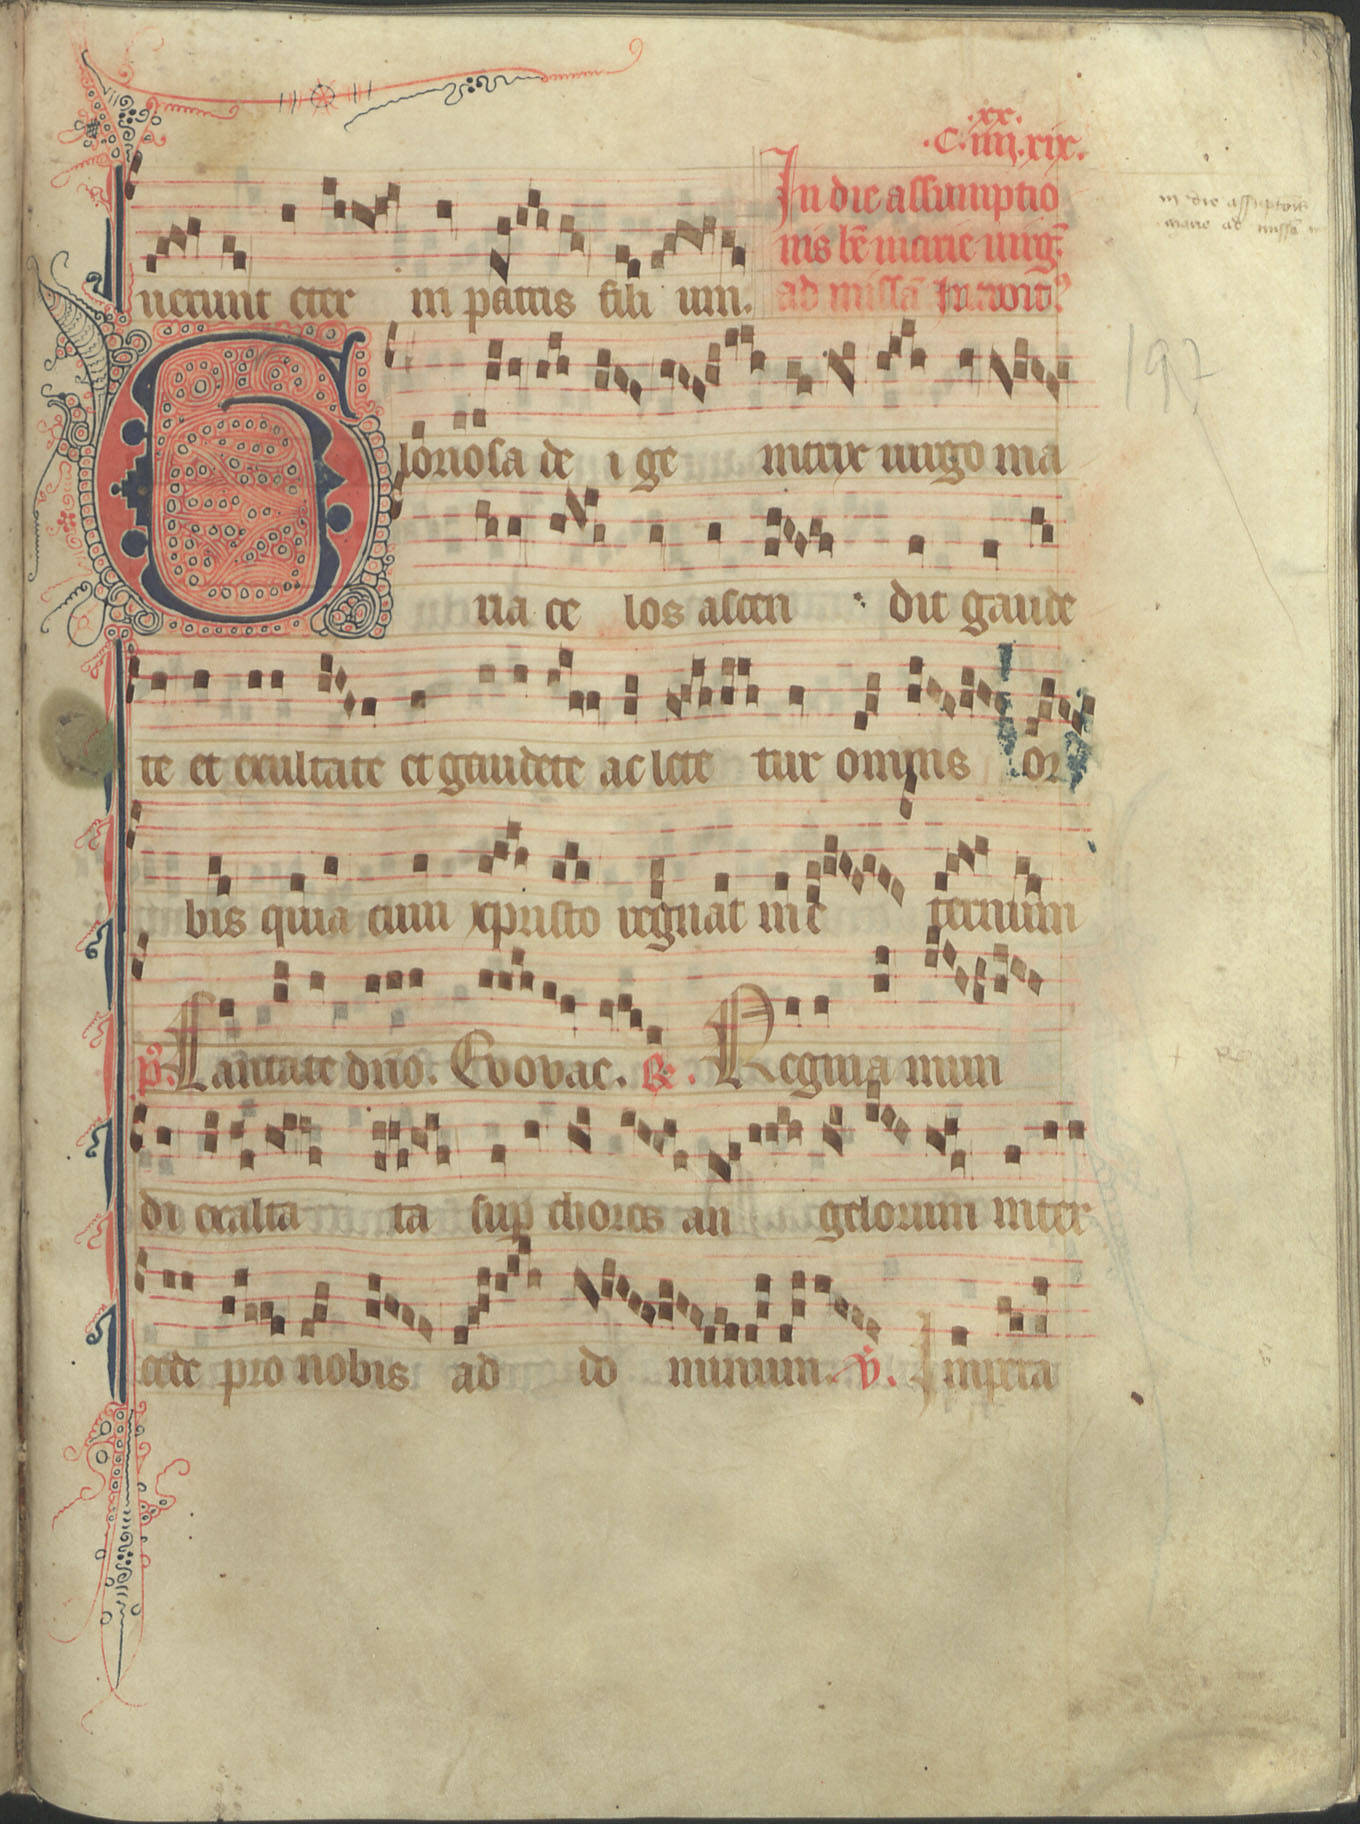 .xx.
.C.iiii.xix.
In die assumptio
nis bē marie uirḡ
ad missā Introit9
in die assūptōis
marie ad missā
uerunt eter ni patris fili um.
197
Gloriosa de i ge nitrix uirgo ma
ria ce los ascen dit gaude
te et exultate et gaudete ac lete tur omnis or
bis quia cum xpristo regnat in e ternum
p̄s. Cantate dnō. Evovae. R. Regina mun
di exalta ta sup choros an gelorum inter
cede pro nobis ad do minum. V. Impera